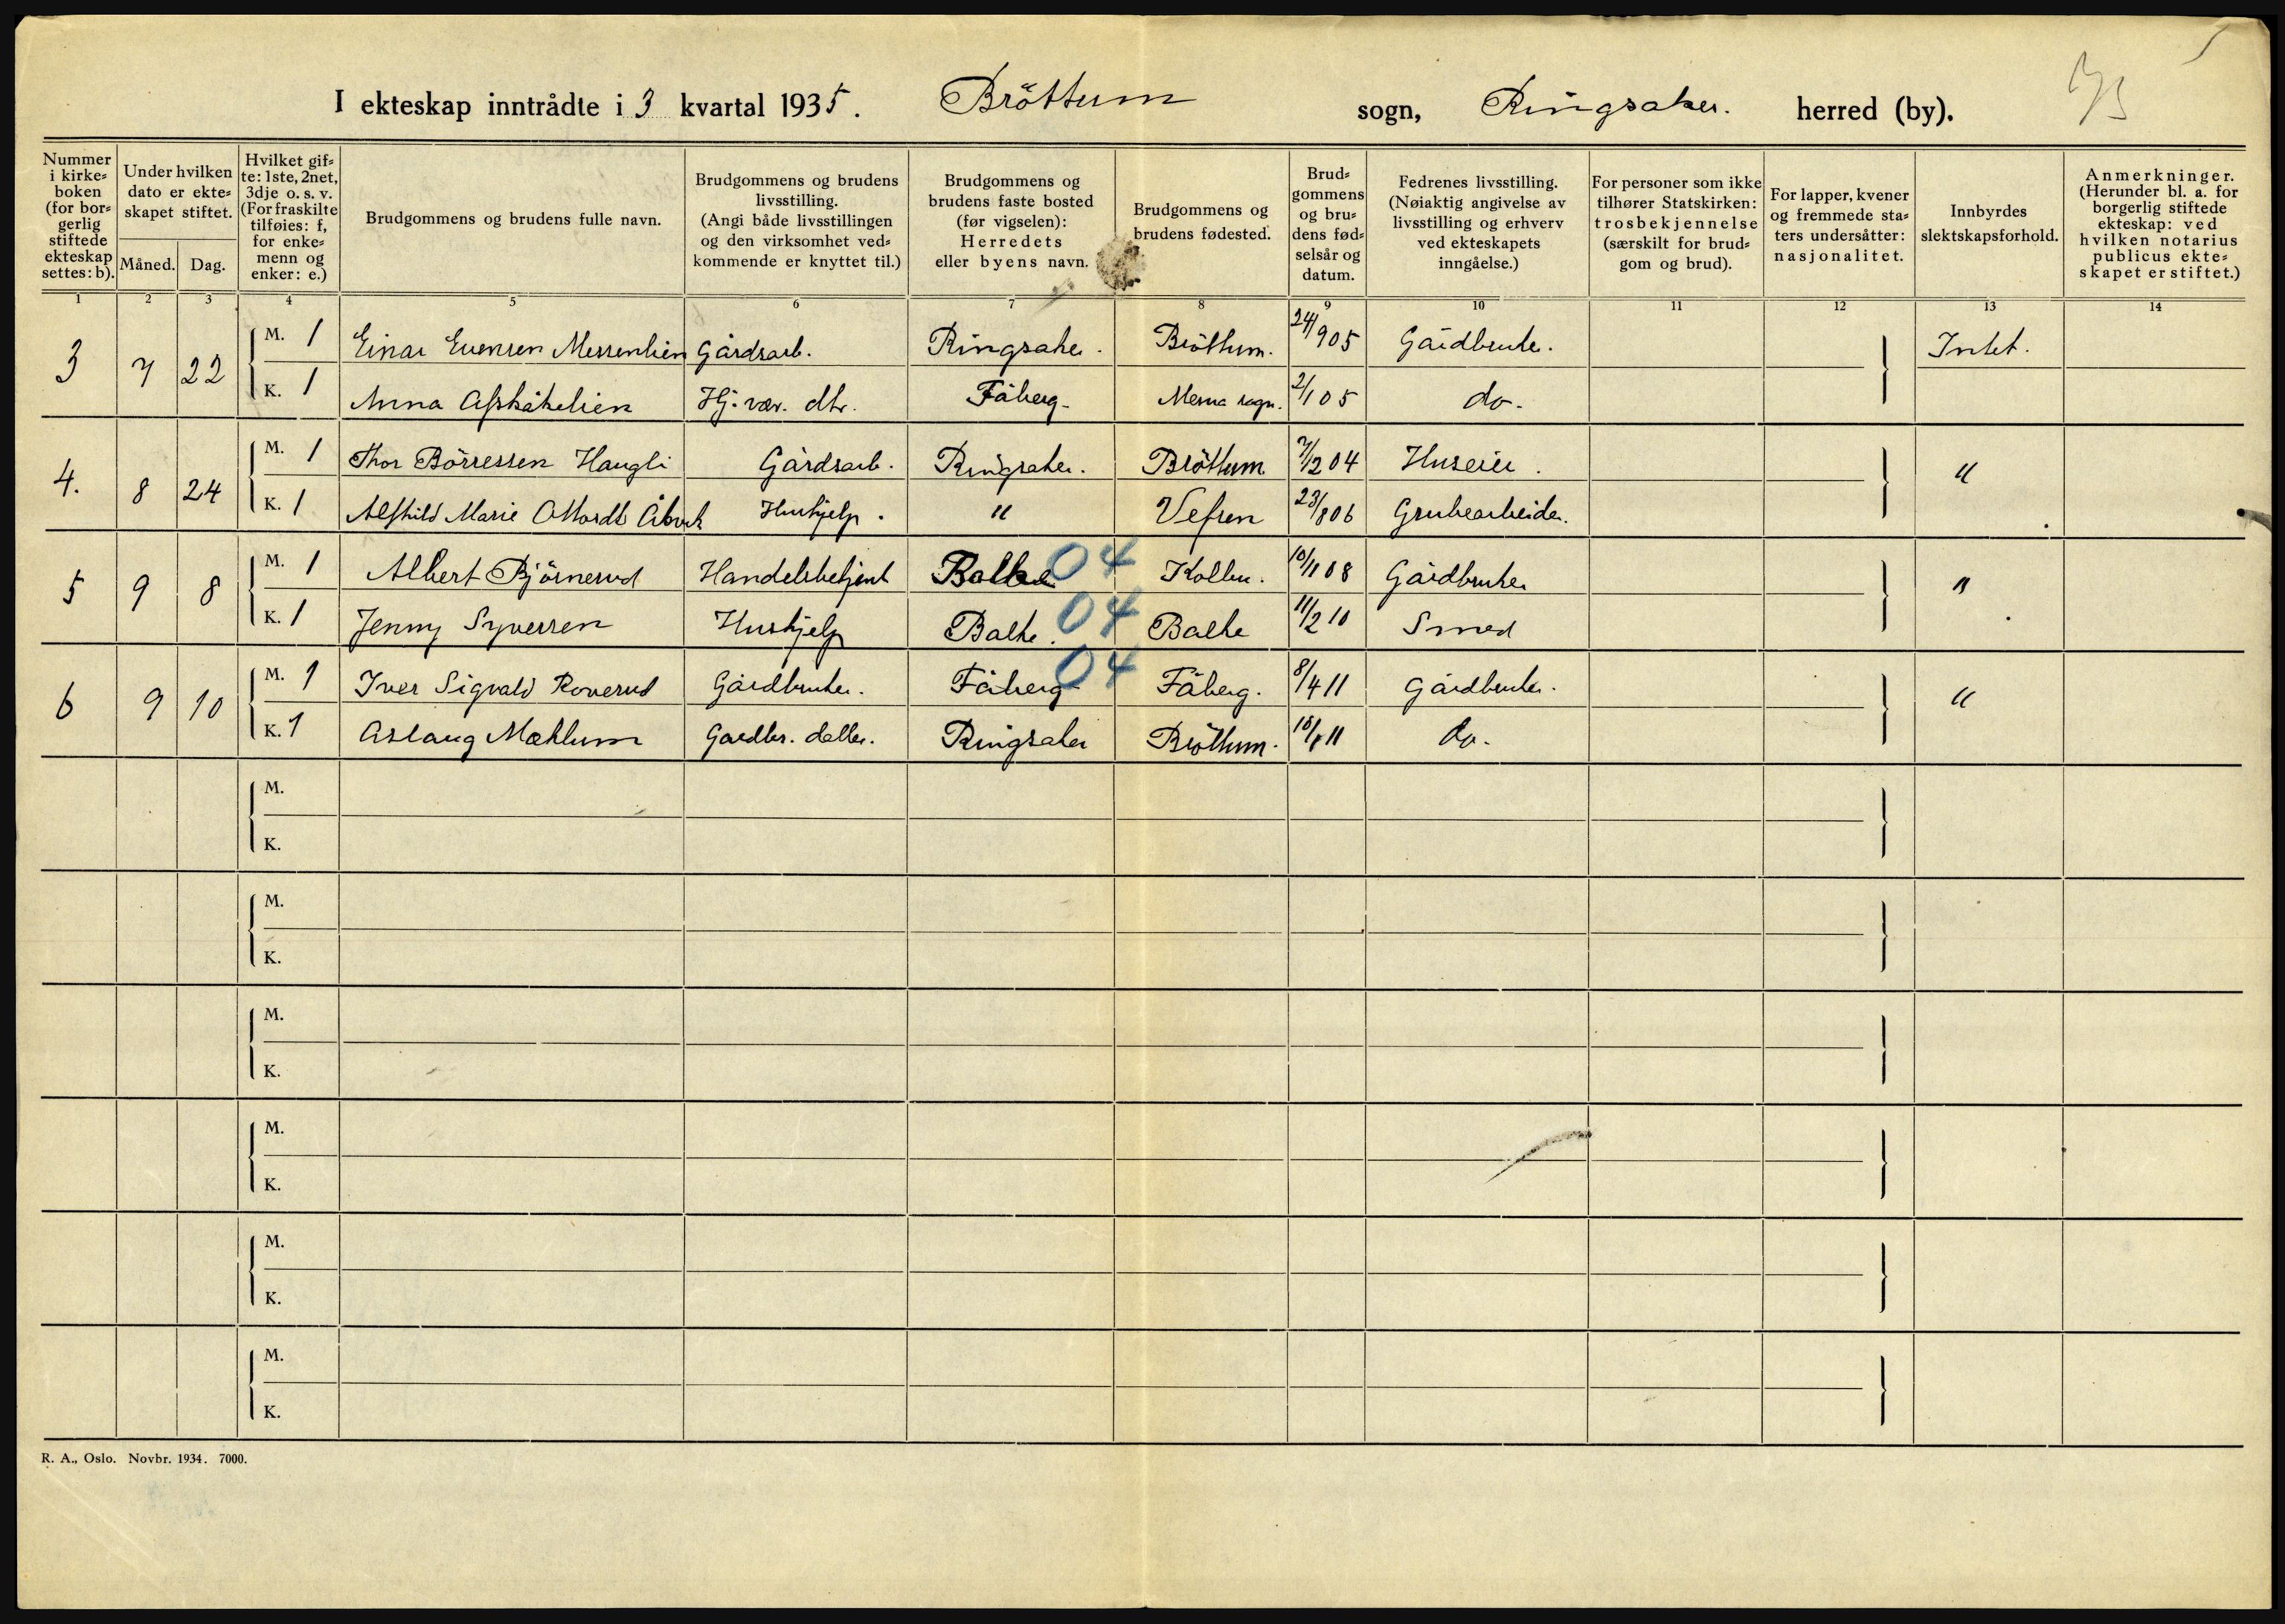 I ekteskap inntrådte i 3 kvartal 1935. Bröttum sogn, Ringsaker. herred (by).
Nummer i kirke=boken (for bor=gerlig stiftede ekteskap settes: b).
Under hvilken dato er ekte=skapet stiftet.
Måned. Dag.
Hvilket gif=te: 1ste, 2net, 3dje o. s. v. (For fraskilte tilføies: f, for enke=menn og enker: e.)
Brudgommens og brudens fulle navn.
Brudgommens og brudens livsstilling. (Angi både livsstillingen og den virksomhet ved=kommende er knyttet til.)
Brudgommens og brudens faste bosted (før vigselen): Herredets eller byens navn.
Brudgommens og brudens fødested.
Brud=gommens og bru=dens fød=selsår og datum.
Fedrenes livsstilling. (Nøiaktig angivelse av livsstilling og erhverv ved ekteskapets inngåelse.)
For personer som ikke tilhører Statskirken: trosbekjennelse (særskilt for brud=gom og brud).
For lapper, kvener og fremmede sta=ters undersåtter: nasjonalitet.
Innbyrdes slektskapsforhold.
Anmerkninger. (Herunder bl. a. for borgerlig stiftede ekteskap: ved hvilken notarius publicus ekte=skapet er stiftet.)
1 2 3 4 5 6 7 8 9 10 11 12 13 14
3 7 22 M. 1 Einar Evensen Messenlien Gårdsarb. Ringsaker. Bröttum. 24/905 Gårdbruker. Intet.
K. 1 Anna Hj. vær. dtr. Fåberg. Mesna sogn. 2/1 05 do.
4. 8 24 M. 1 Thor Börressen Haugli Gårdsarb. Ringsaker. Bröttum 7/2 04 Huseier. "
K. 1 Alfhild Marie Hushjelp. " Vefsen 23/8 06 Grubearbeider.
5 9 8 M. 1 Albert Björnerud Handelsbetjent Balke 04 Kolbu. 10/11 08 Gårdbruker "
K. 1 Jenny Syversen Hushjelp Balke. 04 Balke 11/2 10 Smed
6 9 10 M. 1 Iver Sigvald Roverud Gårdbruker. Fåberg 04 Fåberg. 8/4 11 Gårdbruker. "
K. 1 Aslaug Mæhlum Gaardbr. datter. Ringsaker Bröttum. do.
M.
K.
M.
K.
M.
K.
M.
K.
M.
K.
M.
K.
R. A., Oslo. Novbr. 1934. 7000.